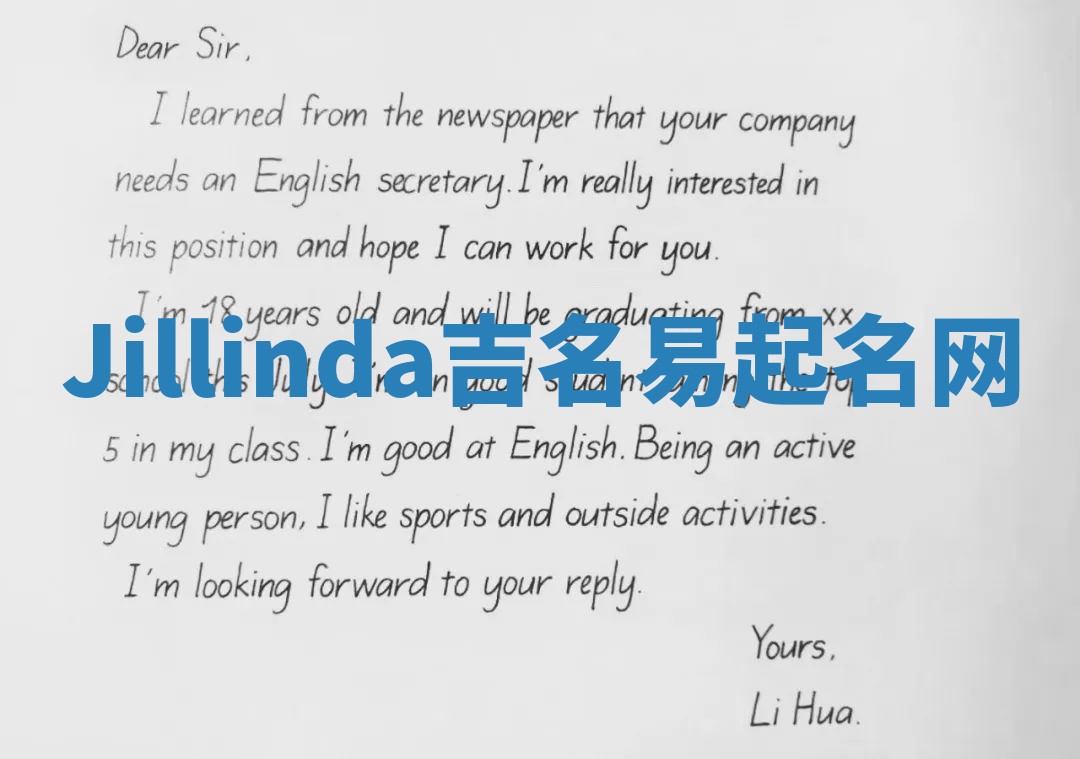 Dear Sir,
I learned from the newspaper that your company
needs an English secretary. I'm really interested in
this position and hope I can work for you.
I'm 18 years old and will be graduating from xx
Jillinda吉名易起名网
school this July. I'm an good student among the top
5 in my class. I'm good at English. Being an active
young person, I like sports and outside activities.
I'm looking forward to your reply.
Yours,
Li Hua.